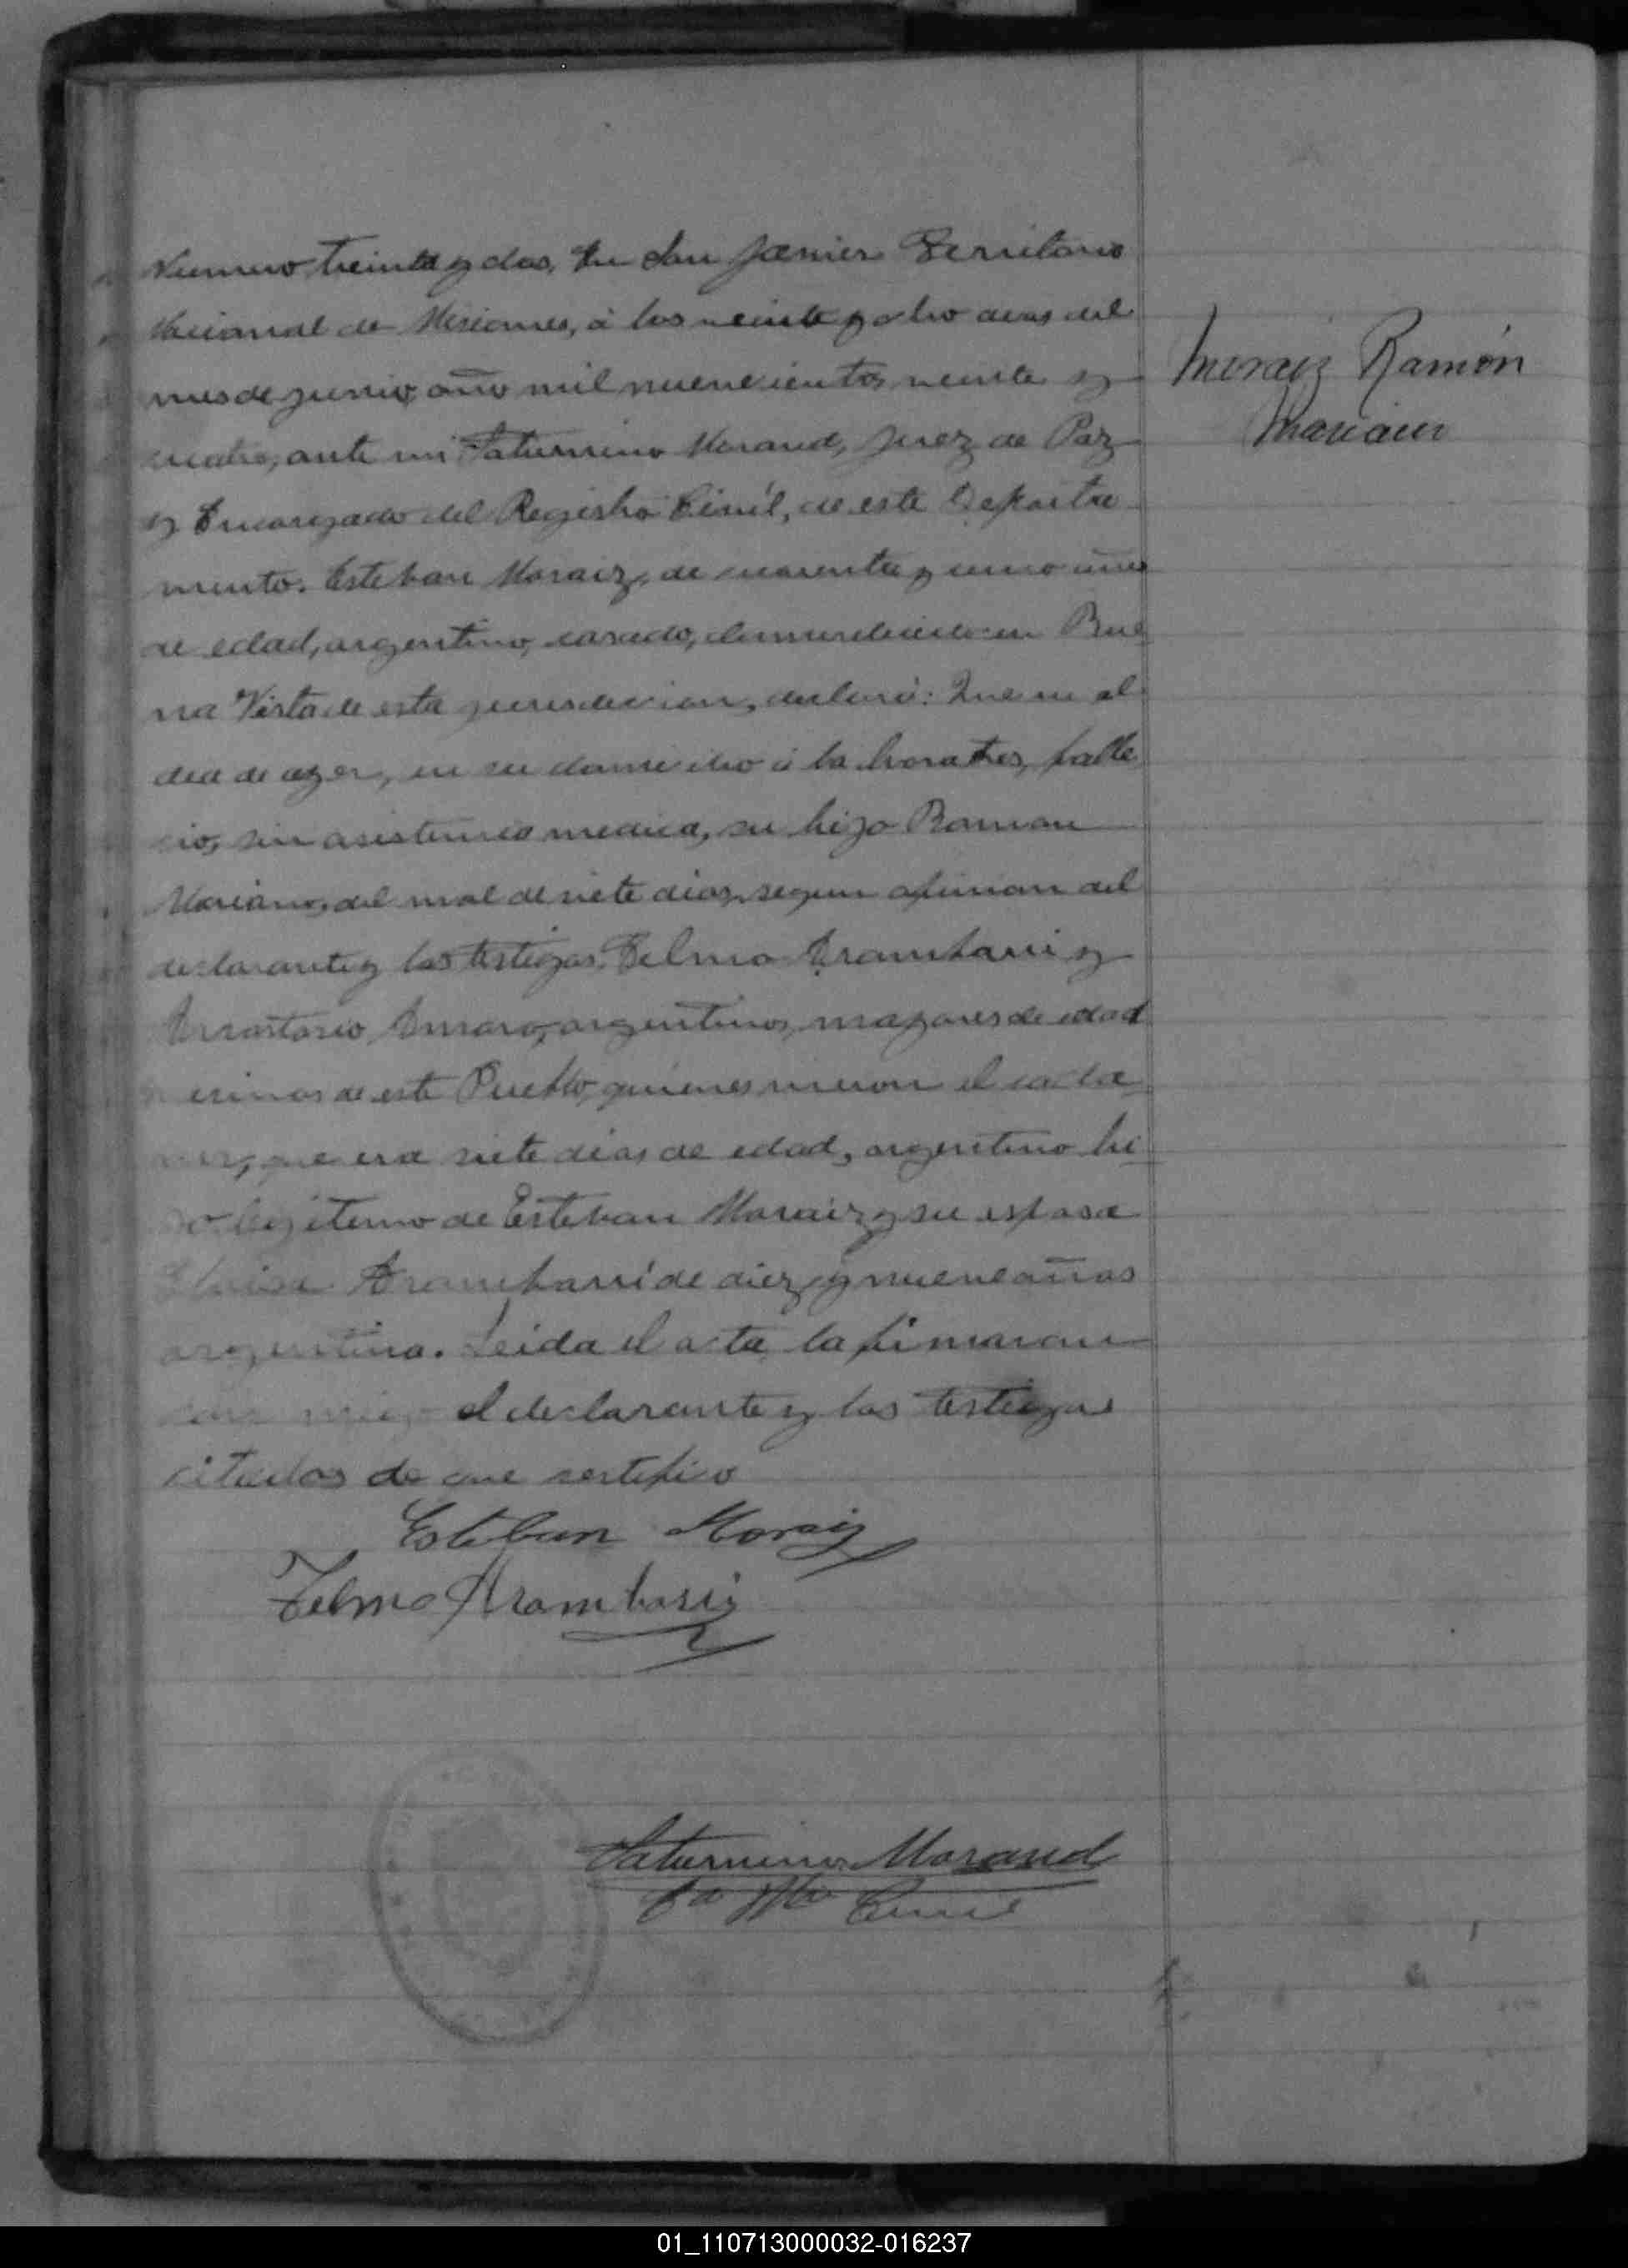 Numero treinta y dos, En San Javier Territorio
Nacional de Misiones, á los veinte y ocho dias del
mes de junio, año mil nuevecientos veinte y
cuatro, ante mi Saturnino Morand, Juez de Paz
y Encargado del Registro Civíl, de este Departa
mento. Esteban Moraiz, de cuarenta y años
de edad, argentino, casado, domiciliado en Bue
na Vista de esta jurisdiccion, declaró: Que en el
dia de ayer, en su domicilio á la hora tres, falle
cio, sin asistencia medica, su hijo Ramon
Mariano, del mal de siete dias, segun opinion del
declarante y los testigos, Telmo Arambarri y
Amaro, argentinos, mayores de edad
vecinos de este Pueblo, quienes vieron el cada
ver, que era siete dias de edad, argentino hi
jo legitimo de Esteban Moraiz y su esposa
Arambarri de diez y nueve años
argentina. Leida el acta la firmaron
con migo el declarante y los testigos
citados de que sertifico
Esteban Moraiz
Telmo Arambarri
Saturnino Morand
Civil
Moraiz Ramón
Mariano
01_110713000032-016237